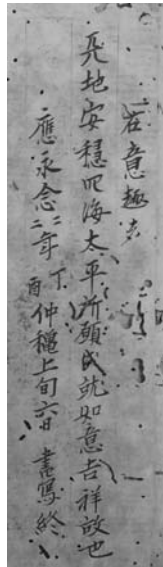 右意趣者
天地安穏四海太平所願成就如意吉祥故也
應永念二二年丁酉仲穐上旬六日 書寫終